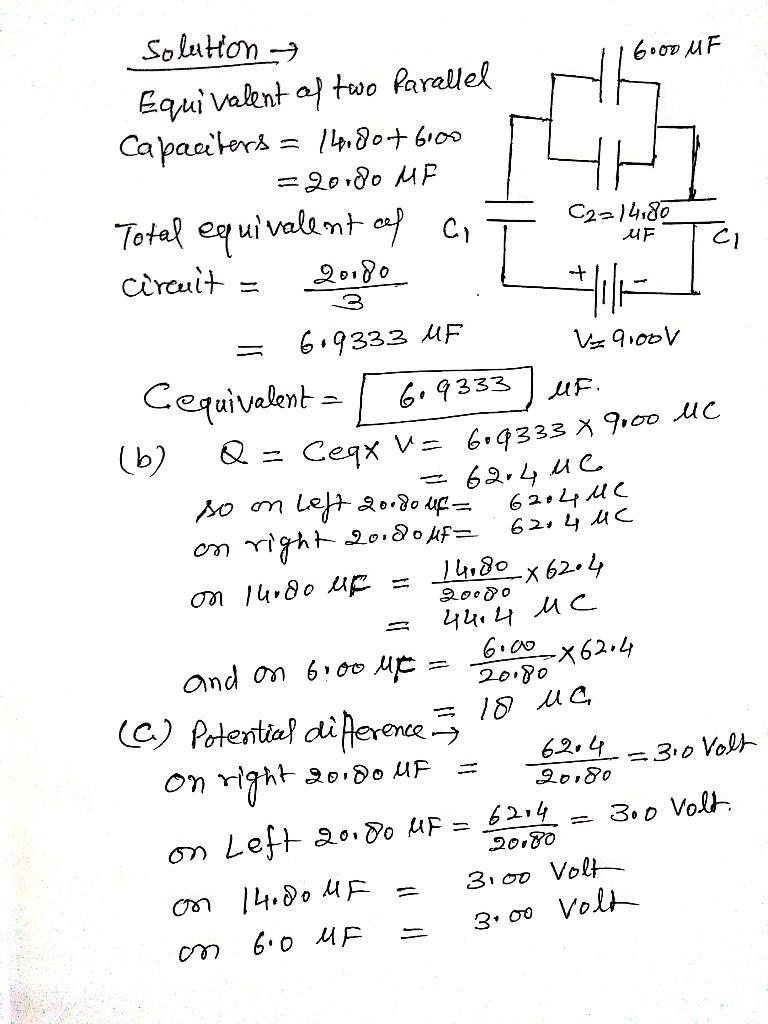 Solution →
6.00 MF
Equivalent of two Parallel
Capacitors = 14.80 + 6.00
= 20.80 MF
C2 = 14.80
MF
Total equivalent of
C1
C1
circuit = 20.80
3
+ -
= 6.9333 MF
V = 9.00V
Cequivalent = 6.9333 MF.
(b) Q = Ceqx V = 6.9333 X 9.00 MC
= 62.4 MC
so on Left 20.80 MF = 62.4 MC
on right 20.80 MF = 62.4 MC
on 14.80 MF = 14.80 X 62.4
20.80
= 44.4 MC
and on 6.00 MF = 6.00 X 62.4
20.80
= 18 MC
(C) Potential difference →
on right 20.80 MF = 62.4 = 3.0 Volt
20.80
on Left 20.80 MF = 62.4 = 3.0 Volt.
20.80
on 14.80 MF = 3.00 Volt
on 6.0 MF = 3.00 Volt